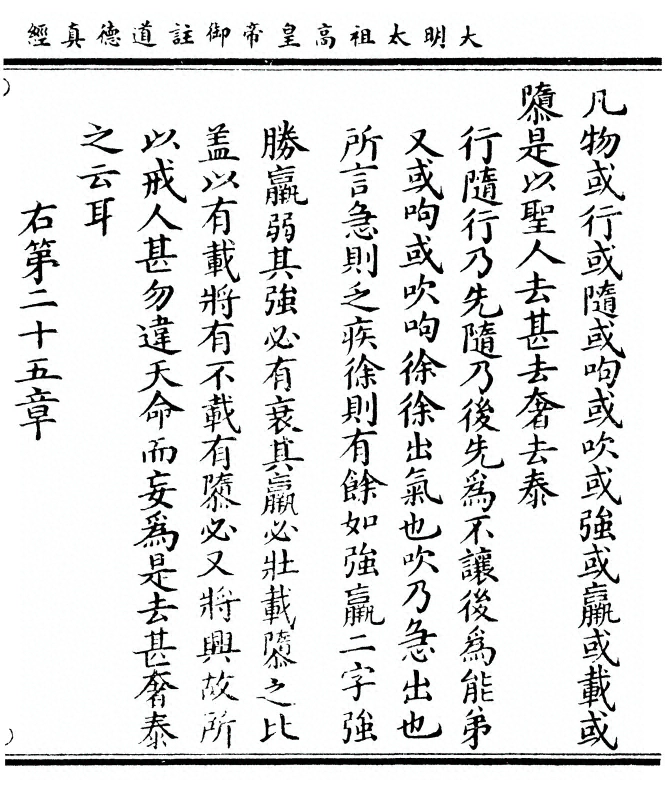 大明太祖高皇帝御註道德真經
凡物或行或隨或呴或吹或強或羸或載或
隳是以聖人去甚去奢去泰
行隨行乃先隨乃後先爲不讓後爲能弟
又或呴或吹呴徐徐出氣也吹乃急出也
所言急則乏疾徐則有餘如強羸二字強
勝羸弱其強必有衰其羸必壯載隳之比
盖以有載將有不載有隳必又將興故所
以戒人甚勿違天命而妄爲是去甚奢泰
之云耳
右第二十五章